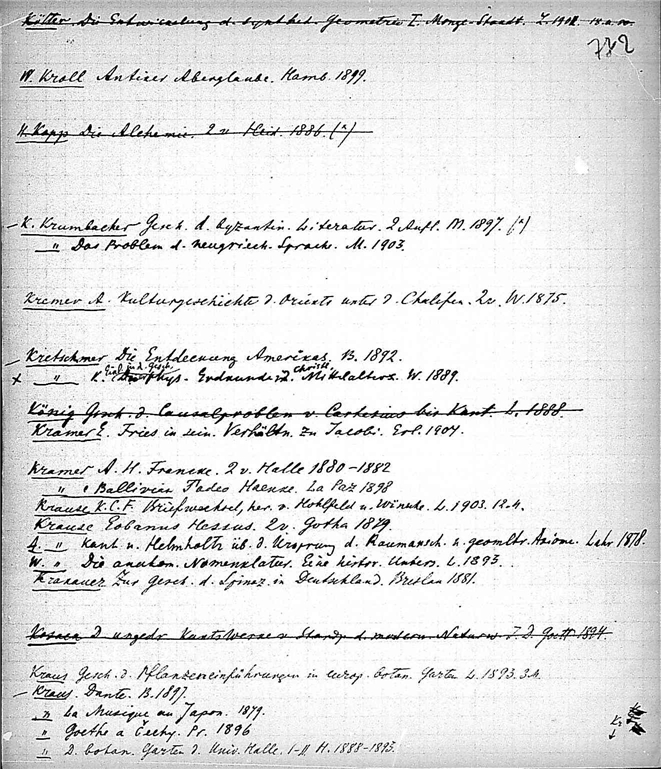 Kötter Die Entwickelung d. synthet. Geometrie I. Monge-Staudt. L. 1901.
782
W. Kroll Antiker Aberglaube. Hamb. 1899.
H. Kopp Die Alchemie. 2 v Heid. 1886. (*)
K. Krumbacher Gesch. d. byzantin. Literatur. 2 Aufl. M. 1897. (*)
" Das Problem d. neugriech. Sprache. M. 1903.
Kremer A. Kulturgeschichte d. Orients unter d. Chalifen. 2v. W. 1875.
Kretschmer Die Entdeckung Amerikas. B. 1892.
x " K. Die phys. Erdkunde d. christl. Mittelalters. W. 1889.
König Gesch. d. Causalproblem v. Cartesius bis Kant. L. 1888.
Kramer E. Fries in sein. Verhältn. zu Jacobi. Erl. 1904.
Kramer A. H. Francke. 2 v. Halle 1880-1882
" " Ballivián Tadeo Haenke. La Paz 1898
Krause K.C.F. Briefwechsel, her. v. Hohlfeld u. Wünsche. L. 1903.
Krause Eobanus Hessus. 2v. Gotha 1879.
A. " Kant u. Helmholtz üb. d. Ursprung d. Raumansch. u. geometr. Axiome. Lahr 1878.
W. " Die anatom. Nomenklatur. Eine histor. Unters. L. 1893.
Krakauer Zur Gesch. d. Spinoz. in Deutschland. Breslau 1881.
D ungedr Kants Werke v d. modern. Naturw. 1894.
Kraus Gesch. d. Pflanzeneinführungen in europ. botan. Gärten L. 1893. 3.4.
Kraus. Dante. B. 1897.
" La Musique au Japon. 1879.
" Goethe a Čechy. Pr. 1896
" D. botan. Garten d. Univ. Halle. I-II H. 1888-1893.